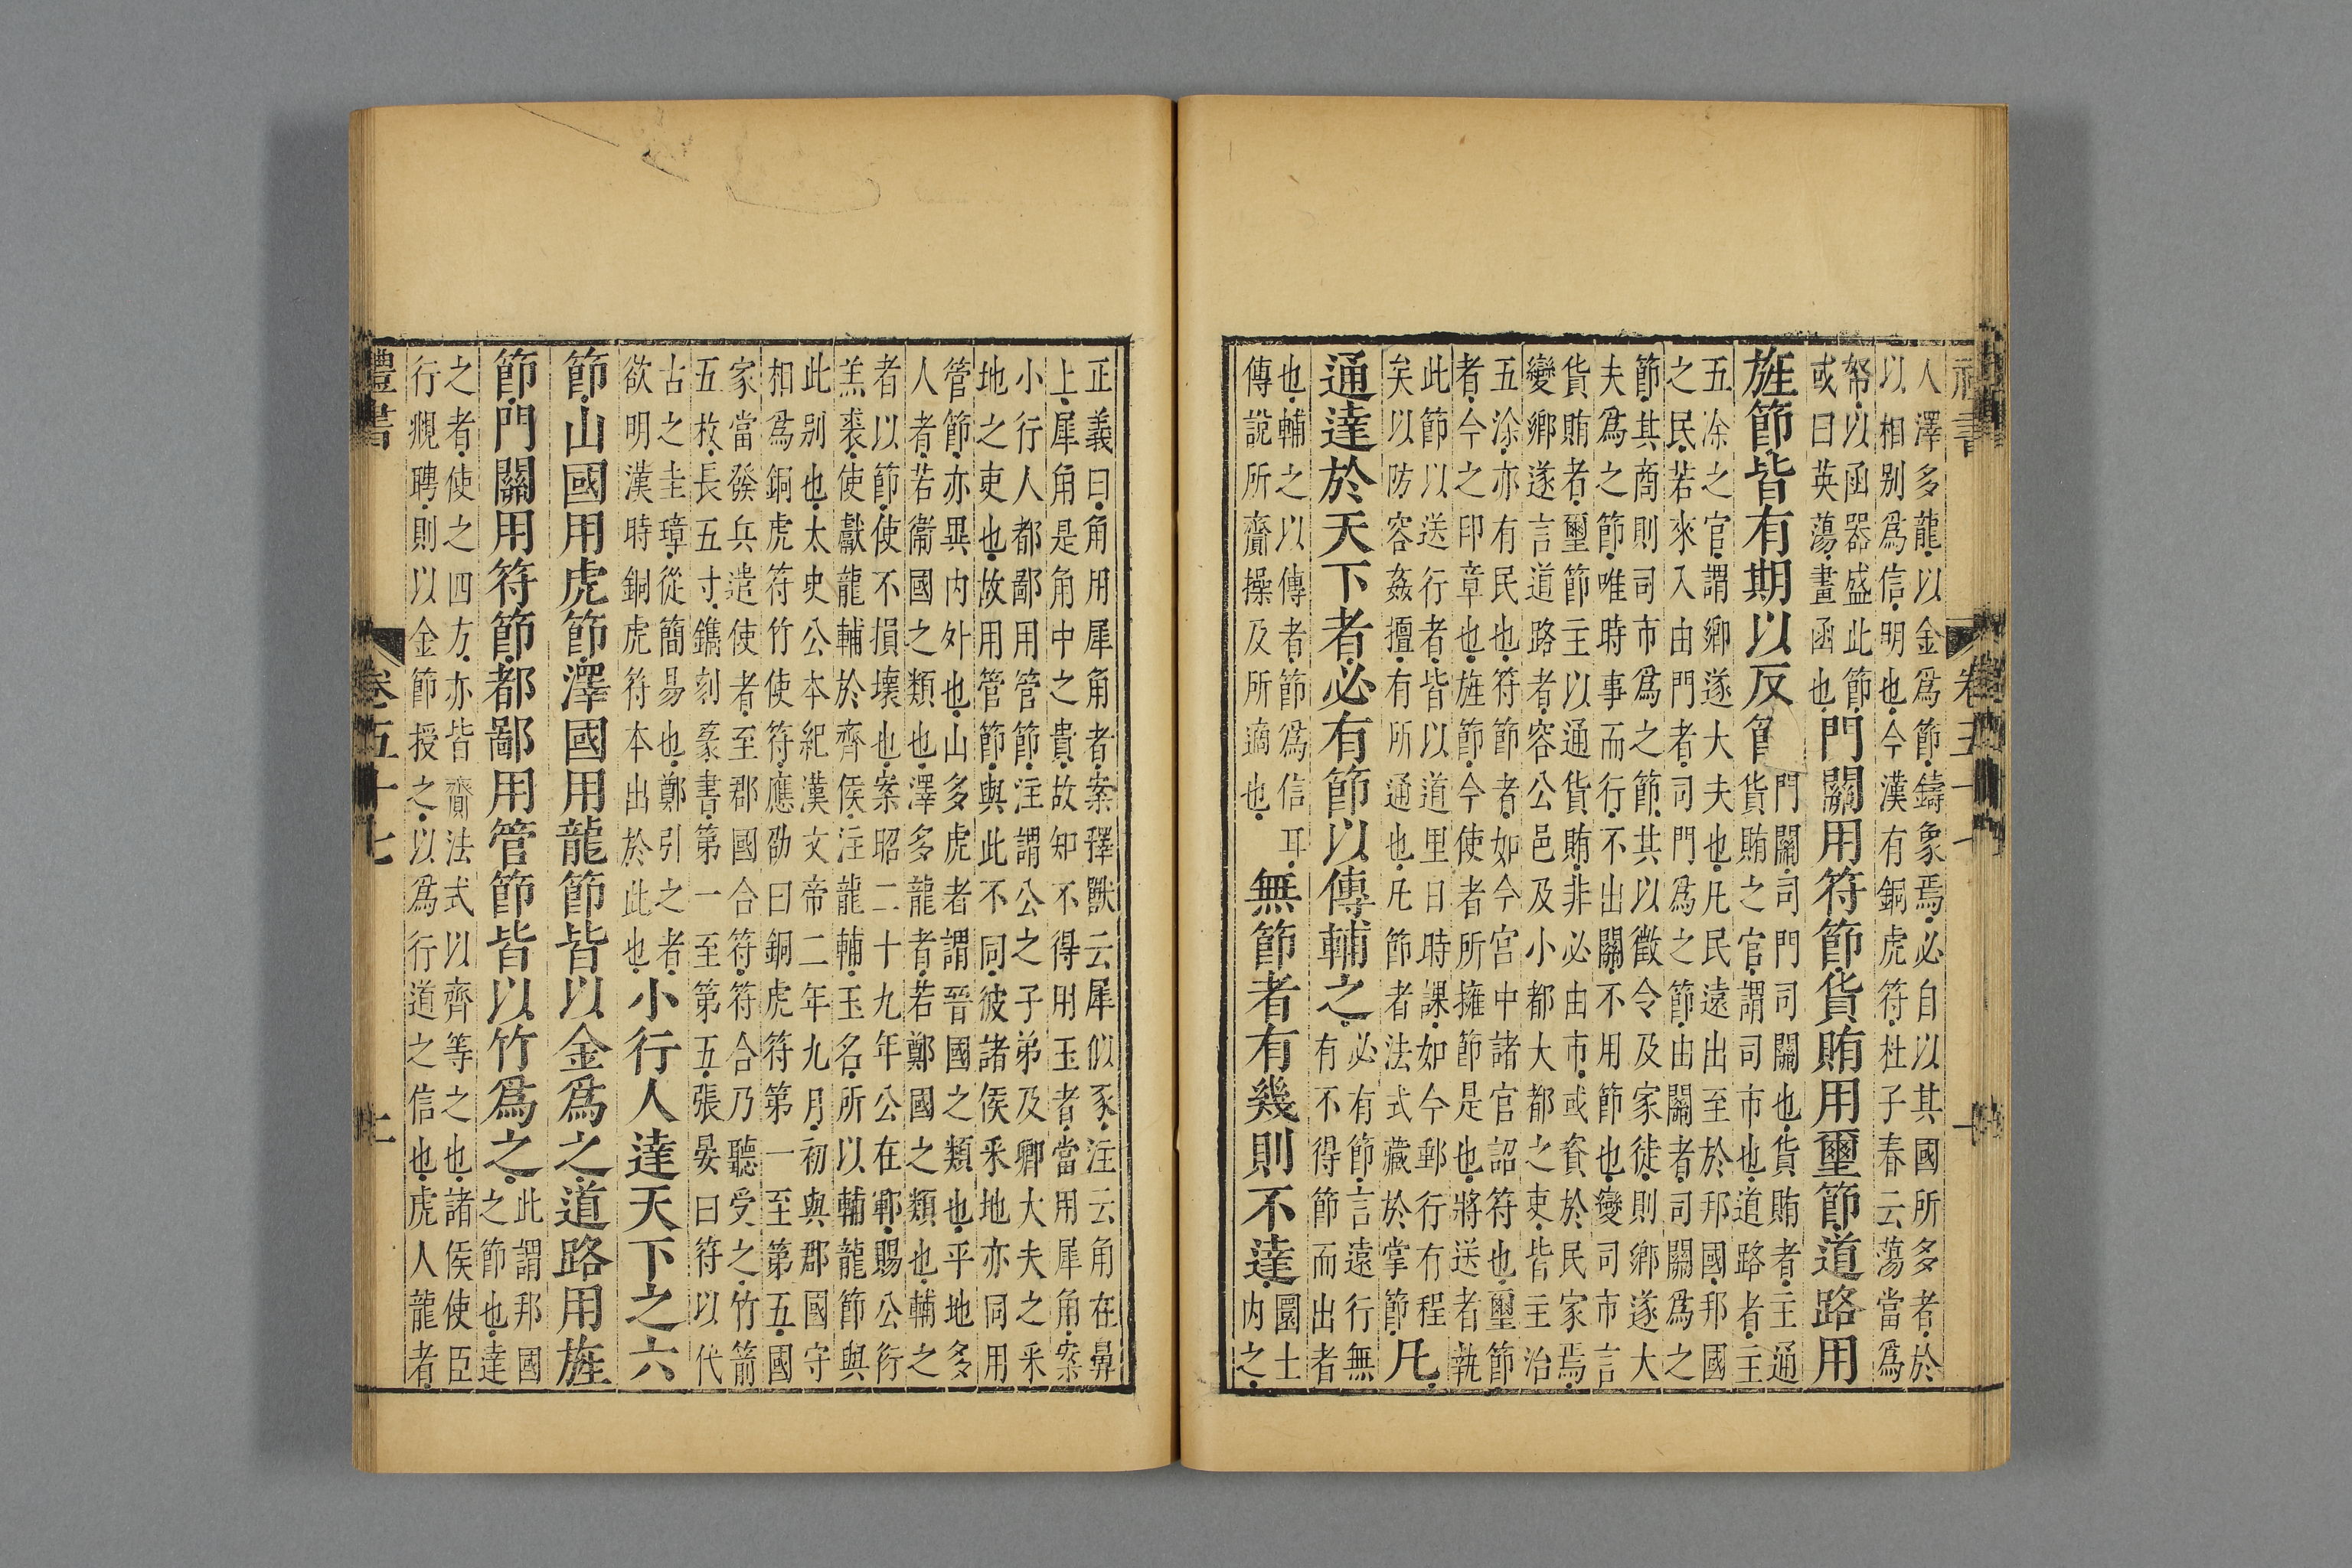 人澤多龍以金爲節鑄象焉必自以其國所多者於
以相別爲信明也今漢有銅虎符杜子春云蕩當爲
帑以函器盛此節
或曰英蕩畫函也
門關用符節貨賄用璽節道路用
旌節皆有期以反節
門關司門司關也貨賄者主通
貨賄之官謂司市也道路者主
五凃之官謂鄉遂大夫也凡民遠出至於邦國邦國
之民若來入由門者司門爲之節由關者司關爲之
節其商則司市爲之節其以徵令及家徒則鄉遂大
夫爲之節唯時事而行不出關不用節也變司市言
貨賄者璽節主以通貨賄非必由市或資於民家焉
變鄉遂言道路者容公邑及小都大都之吏皆主治
五凃亦有民也符節者如今宮中諸官詔符也璽節
者今之印章也旌節今使者所擁節是也將送者執
此節以送行者皆以道里日時課如今郵行有程
矣以防容姦擅有所通也凡節者法式藏於掌節
凡
通達於天下者必有節以傳輔之
必有節言遠行無
有不得節而出者
也輔之以傳者節爲信耳
傳說所齎操及所適也
無節者有幾則不達
圜土
內之
正義曰角用犀角者案釋獸云犀似豕注云角在鼻
上犀角是角中之貴故知不得用玉者當用犀角案
小行人都鄙用管節注謂公之子弟及卿大夫之采
地之吏也故用管節與此不同彼諸侯采地亦同用
管節亦異內外也山多虎者謂晉國之類也平地多
人者若衞國之類也澤多龍者若鄭國之類也輔之
者以節使不損壞也案昭二十九年公在鄆賜公衍
羔裘使獻龍輔於齊侯注龍輔玉名所以輔龍節與
此別也太史公本紀漢文帝二年九月初與郡國守
相爲銅虎符竹使符應劭曰銅虎符第一至第五國
家當發兵遣使者至郡國合符符合乃聽受之竹箭
五枚長五寸鐫刻篆書第一至第五張晏曰符以代
古之圭璋從簡易也鄭引之者
欲明漢時銅虎符本出於此也
小行人達天下之六
節山國用虎節澤國用龍節皆以金爲之道路用旌
節門關用符節都鄙用管節皆以竹爲之
此謂邦國
之節也達
之者使之四方亦皆齎法式以齊等之也諸侯使臣
行覜聘則以金節授之以爲行道之信也虎人龍者
禮書
卷五十七